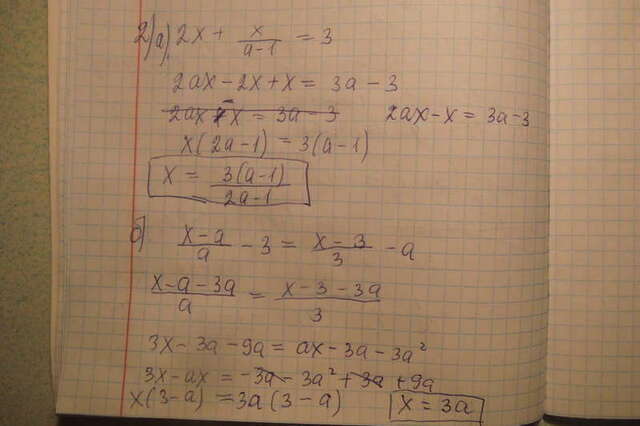 2) а) 2x + x/(a-1) = 3
2ax - 2x + x = 3a - 3
2ax - x = 3a - 3 2ax - x = 3a - 3
x(2a-1) = 3(a-1)
x = 3(a-1)/(2a-1)
б) (x-a)/a - 3 = (x-3)/3 - a
(x-a-3a)/a = (x-3-3a)/3
3x - 3a - 9a = ax - 3a - 3a²
3x - ax = -3a - 3a² + 3a + 9a
x(3-a) = 3a(3-a) x = 3a